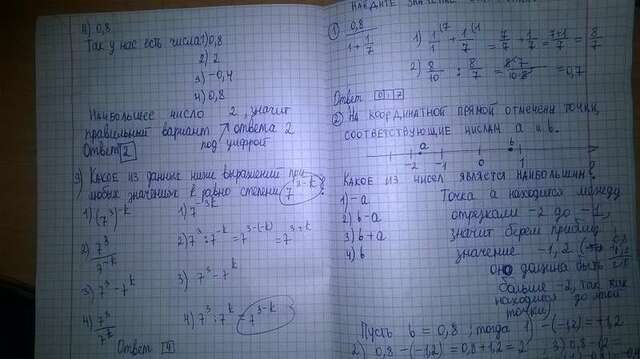 4) 0,8
Так у нас есть числа: 1) 0,8
2) 2
3) -0,4
4) 0,8
Наибольшее число 2, значит
правильный вариант ответа 2
под цифрой
Ответ 2
3) Какое из данных ниже выражений при
любых значениях k равно степени 7^(3-k) ?
1) (7^3)^-k 1) 7^-3k
2) 7^3/7^-k 2) 7^3 : 7^-k = 7^3-(-k) = 7^3+k
3) 7^3 - 7^k 3) 7^3 - 7^k
4) 7^3/7^k 4) 7^3 : 7^k = 7^3-k
Ответ 4
1) 0,8/(1+1/7) 1) 1/1 + 1/7 = 7/7 + 1/7 = (7+1)/7 = 8/7
2) 8/10 : 8/7 = 8·7/10·8 = 0,7
Ответ 0,7
2) На координатной прямой отмечены точки,
соответствующие числам a и b.
-2 a -1 0 b 1
Какое из чисел является наибольшим?
1) -a
2) b-a
3) b+a
4) b
Точка a находится между
отрезками -2 до -1,
значит берем приблиз.
значение -1,2
она должна быть
больше -2, так как
находится до этой
точки)
Пусть b = 0,8, тогда 1) -(-1,2) = +1,2
2) 0,8 - (-1,2) = 0,8 + 1,2 = 2 3) 0,8